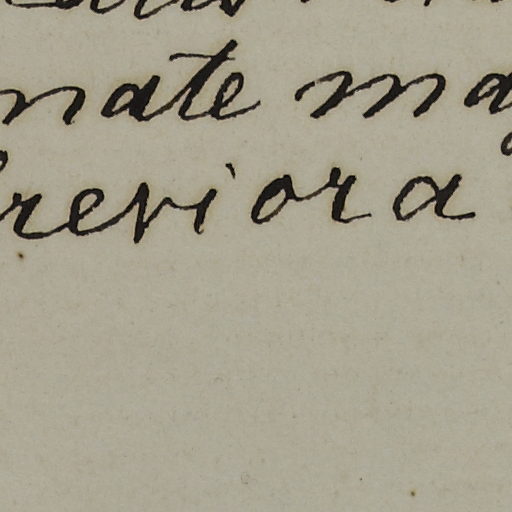 nate ma
breviora